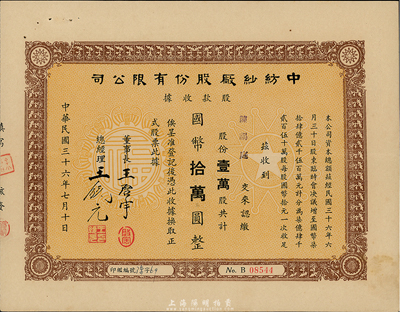 中紡紗廠股份有限公司
股款收據
本公司資本總額茲經民國三十六年六
月三十日股東臨時會決議增至國幣柒
拾肆億貳千伍百萬元計分為柒億肆千
貳百伍十萬股每股國幣拾元一次收足
茲收到
交來認繳
股份壹萬股共計
國幣拾萬圓整
俟呈准登記後憑此收據換取正
式股票此據
董事長 王啓宇
總經理 王
中華民國三十六年七月十日
印鑑編號
No. B 08544
上海陽明拍賣